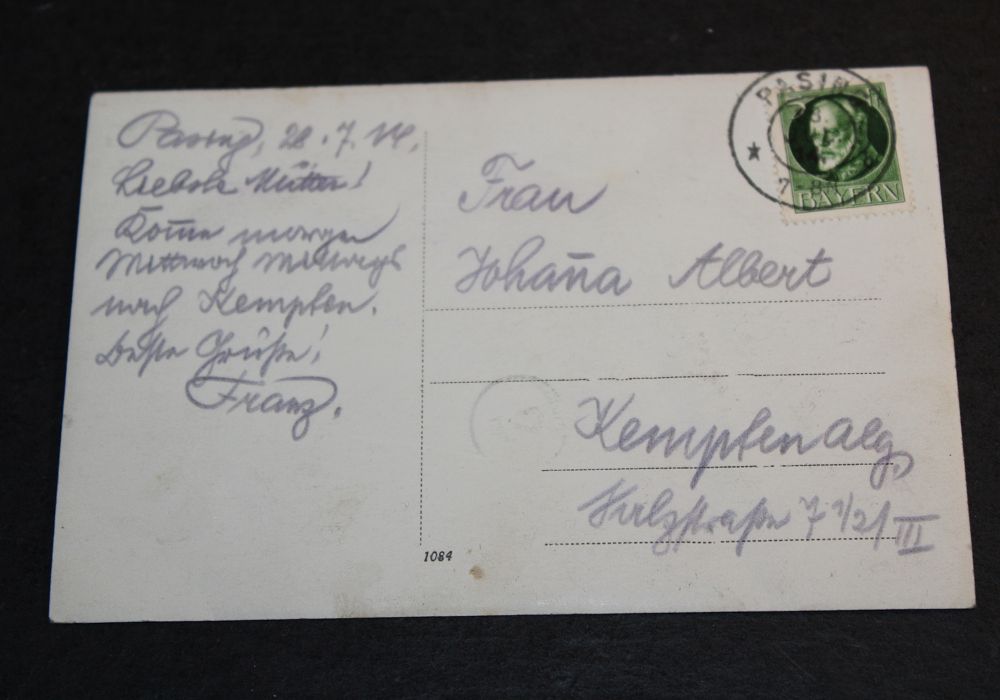 Pasing, 28.7.14.
Liebste Mutter!
Kom̅e morgen
Mittwoch Mittags
nach Kempten.
Beste Grüße!
Franz.
Frau
Johan̅a Albert
Kempten alg.
7 1/2/III
1084
PASING
BAYERN